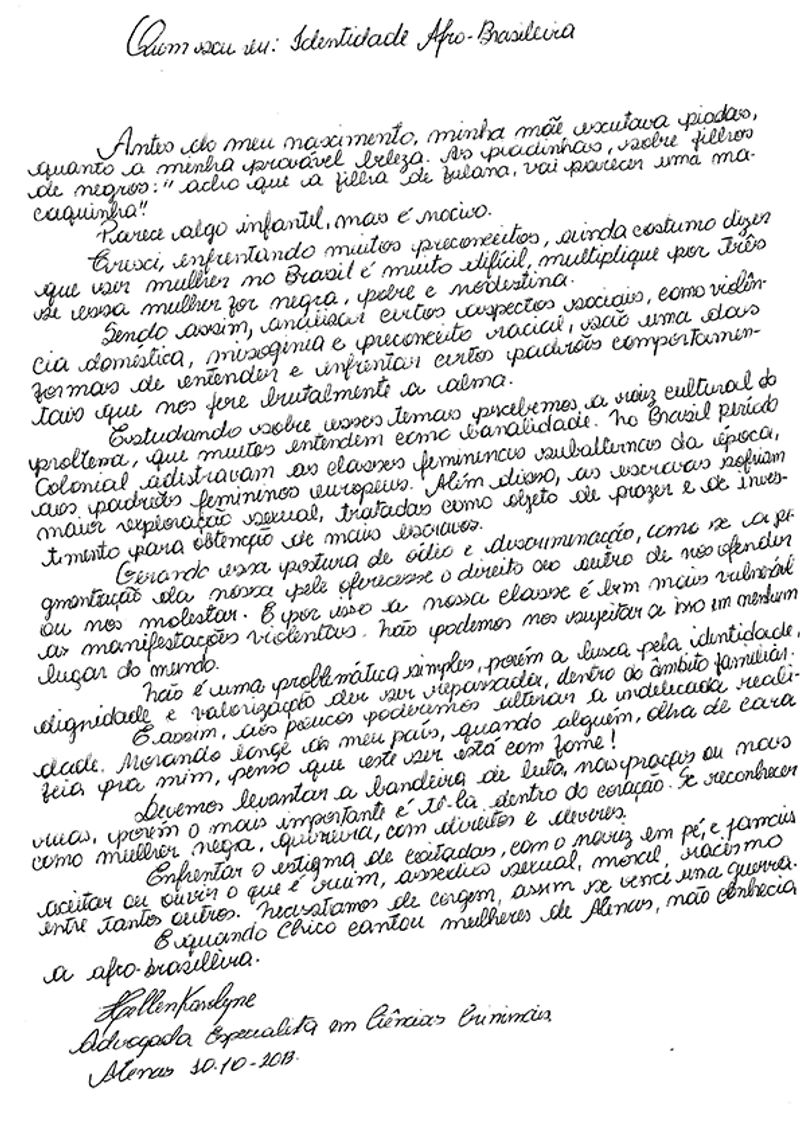 Quem sou eu: Identidade Afro-Brasileira
Antes do meu nascimento, minha mãe escutava piadas,
quanto a minha provável beleza. As piadinhas, sobre filhos
de negros: "acho que a filha de fulana, vai parecer uma ma-
caquinha".
Parece algo infantil, mas é nocivo.
Cresci, enfrentando muitos preconceitos, ainda costumo dizer
que ser mulher no Brasil é muito difícil, multiplique por três
se essa mulher for negra, pobre e nordestina.
Sendo assim, analisar certos aspectos sociais, como violên-
cia doméstica, misoginia e preconceito racial, são uma das
formas de entender e enfrentar certos padrões comportamen-
tais que nos fere brutalmente a alma.
Estudando sobre esses temas percebemos a raiz cultural do
problema, que muitos entendem como banalidade. No Brasil período
Colonial adistravam as classes femininas subalternas da época,
aos padrões femininos europeus. Além disso, as escravas sofriam
maior exploração sexual, tratadas como objeto de prazer e de inves-
timento para obtenção de mais escravos.
Gerando essa postura de ódio e discriminação, como se a pi-
gmentação da nossa pele oferecesse o direito ao outro de nos ofender
ou nos molestar. E por isso a nossa classe é bem mais vulnerável
as manifestações violentas. Não podemos nos sujeitar a isso em nenhum
lugar do mundo.
Não é uma problemática simples, porém a busca pela identidade,
dignidade e valorização der ser repassada, dentro do âmbito familiar.
E assim, aos poucos poderemos alterar a indelicada reali-
dade. Morando longe do meu país, quando alguém, olha de cara
feia pra mim, penso que este ser está com fome!
Devemos levantar a bandeira de luta, nas praças ou nas
ruas, porém o mais importante é tê-la dentro do coração. Se reconhecer
como mulher negra, guerreira, com direitos e deveres.
Enfrentar o estigma de coitadas, com o nariz em pé, e jamais
aceitar ou ouvir o que é ruim, assédio sexual, moral, racismo
entre tantos outros. Necessitamos de coragem, assim se venci uma guerra.
E quando Chico cantou mulheres de Atenas, não conhecia
a afro-brasileira.
Hellen Karolyne
Advogada Especialista em Ciências Criminais
Atenas 10-10-2013.